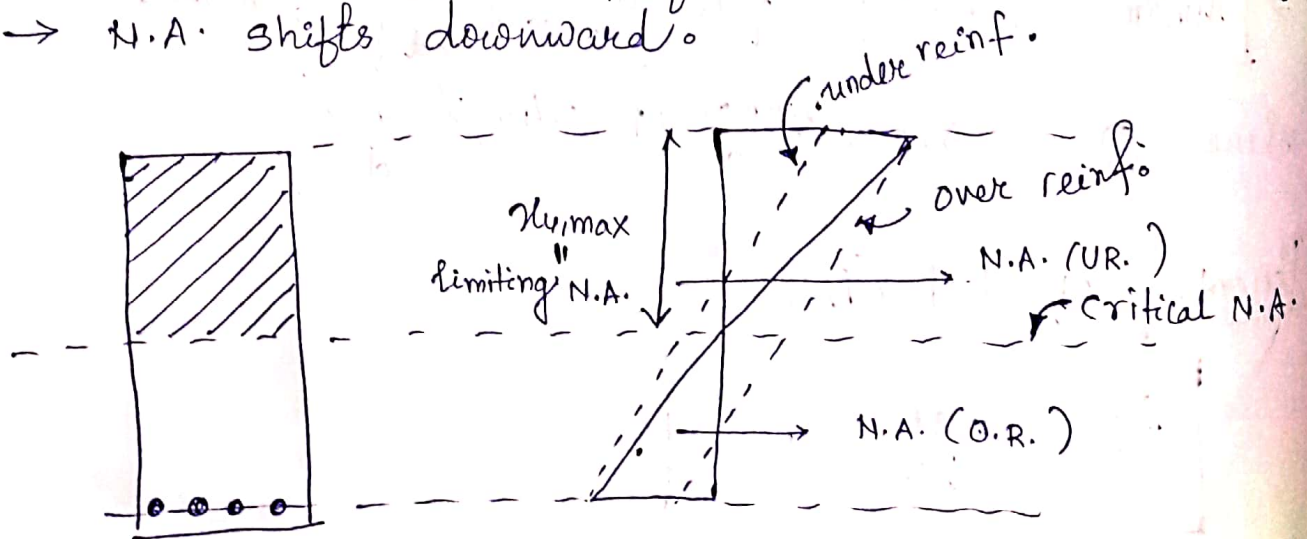 → N.A. shifts downward.
under reinf.
over reinf.
xu,max
"
limiting N.A.
N.A. (UR.)
Critical N.A.
N.A. (O.R.)